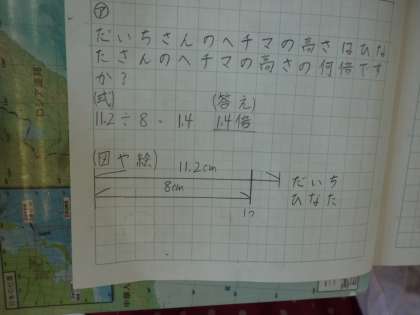 ア
だいちさんのヘチマの高さはひな
たさんのヘチマの高さの何倍です
か?
(式)
(答え)
11.2÷8=1.4
1.4倍
(図や絵)
11.2cm
だいち
8cm
ひなた